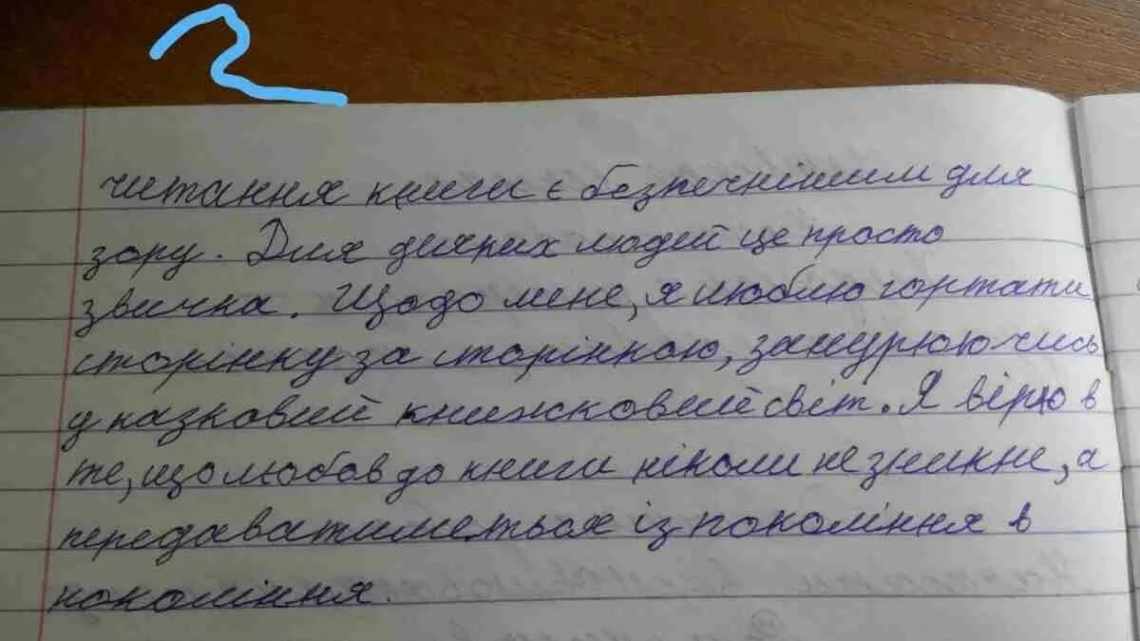 читання книги є безпечнішим для
зору. Для деяких людей це просто
звичка. Щодо мене, я люблю гортати
сторінку за сторінкою, занурюючись
у казковий книжковий світ. Я вірю в
те, що любов до книги ніколи не зникне, а
передаватиметься із покоління в
покоління.